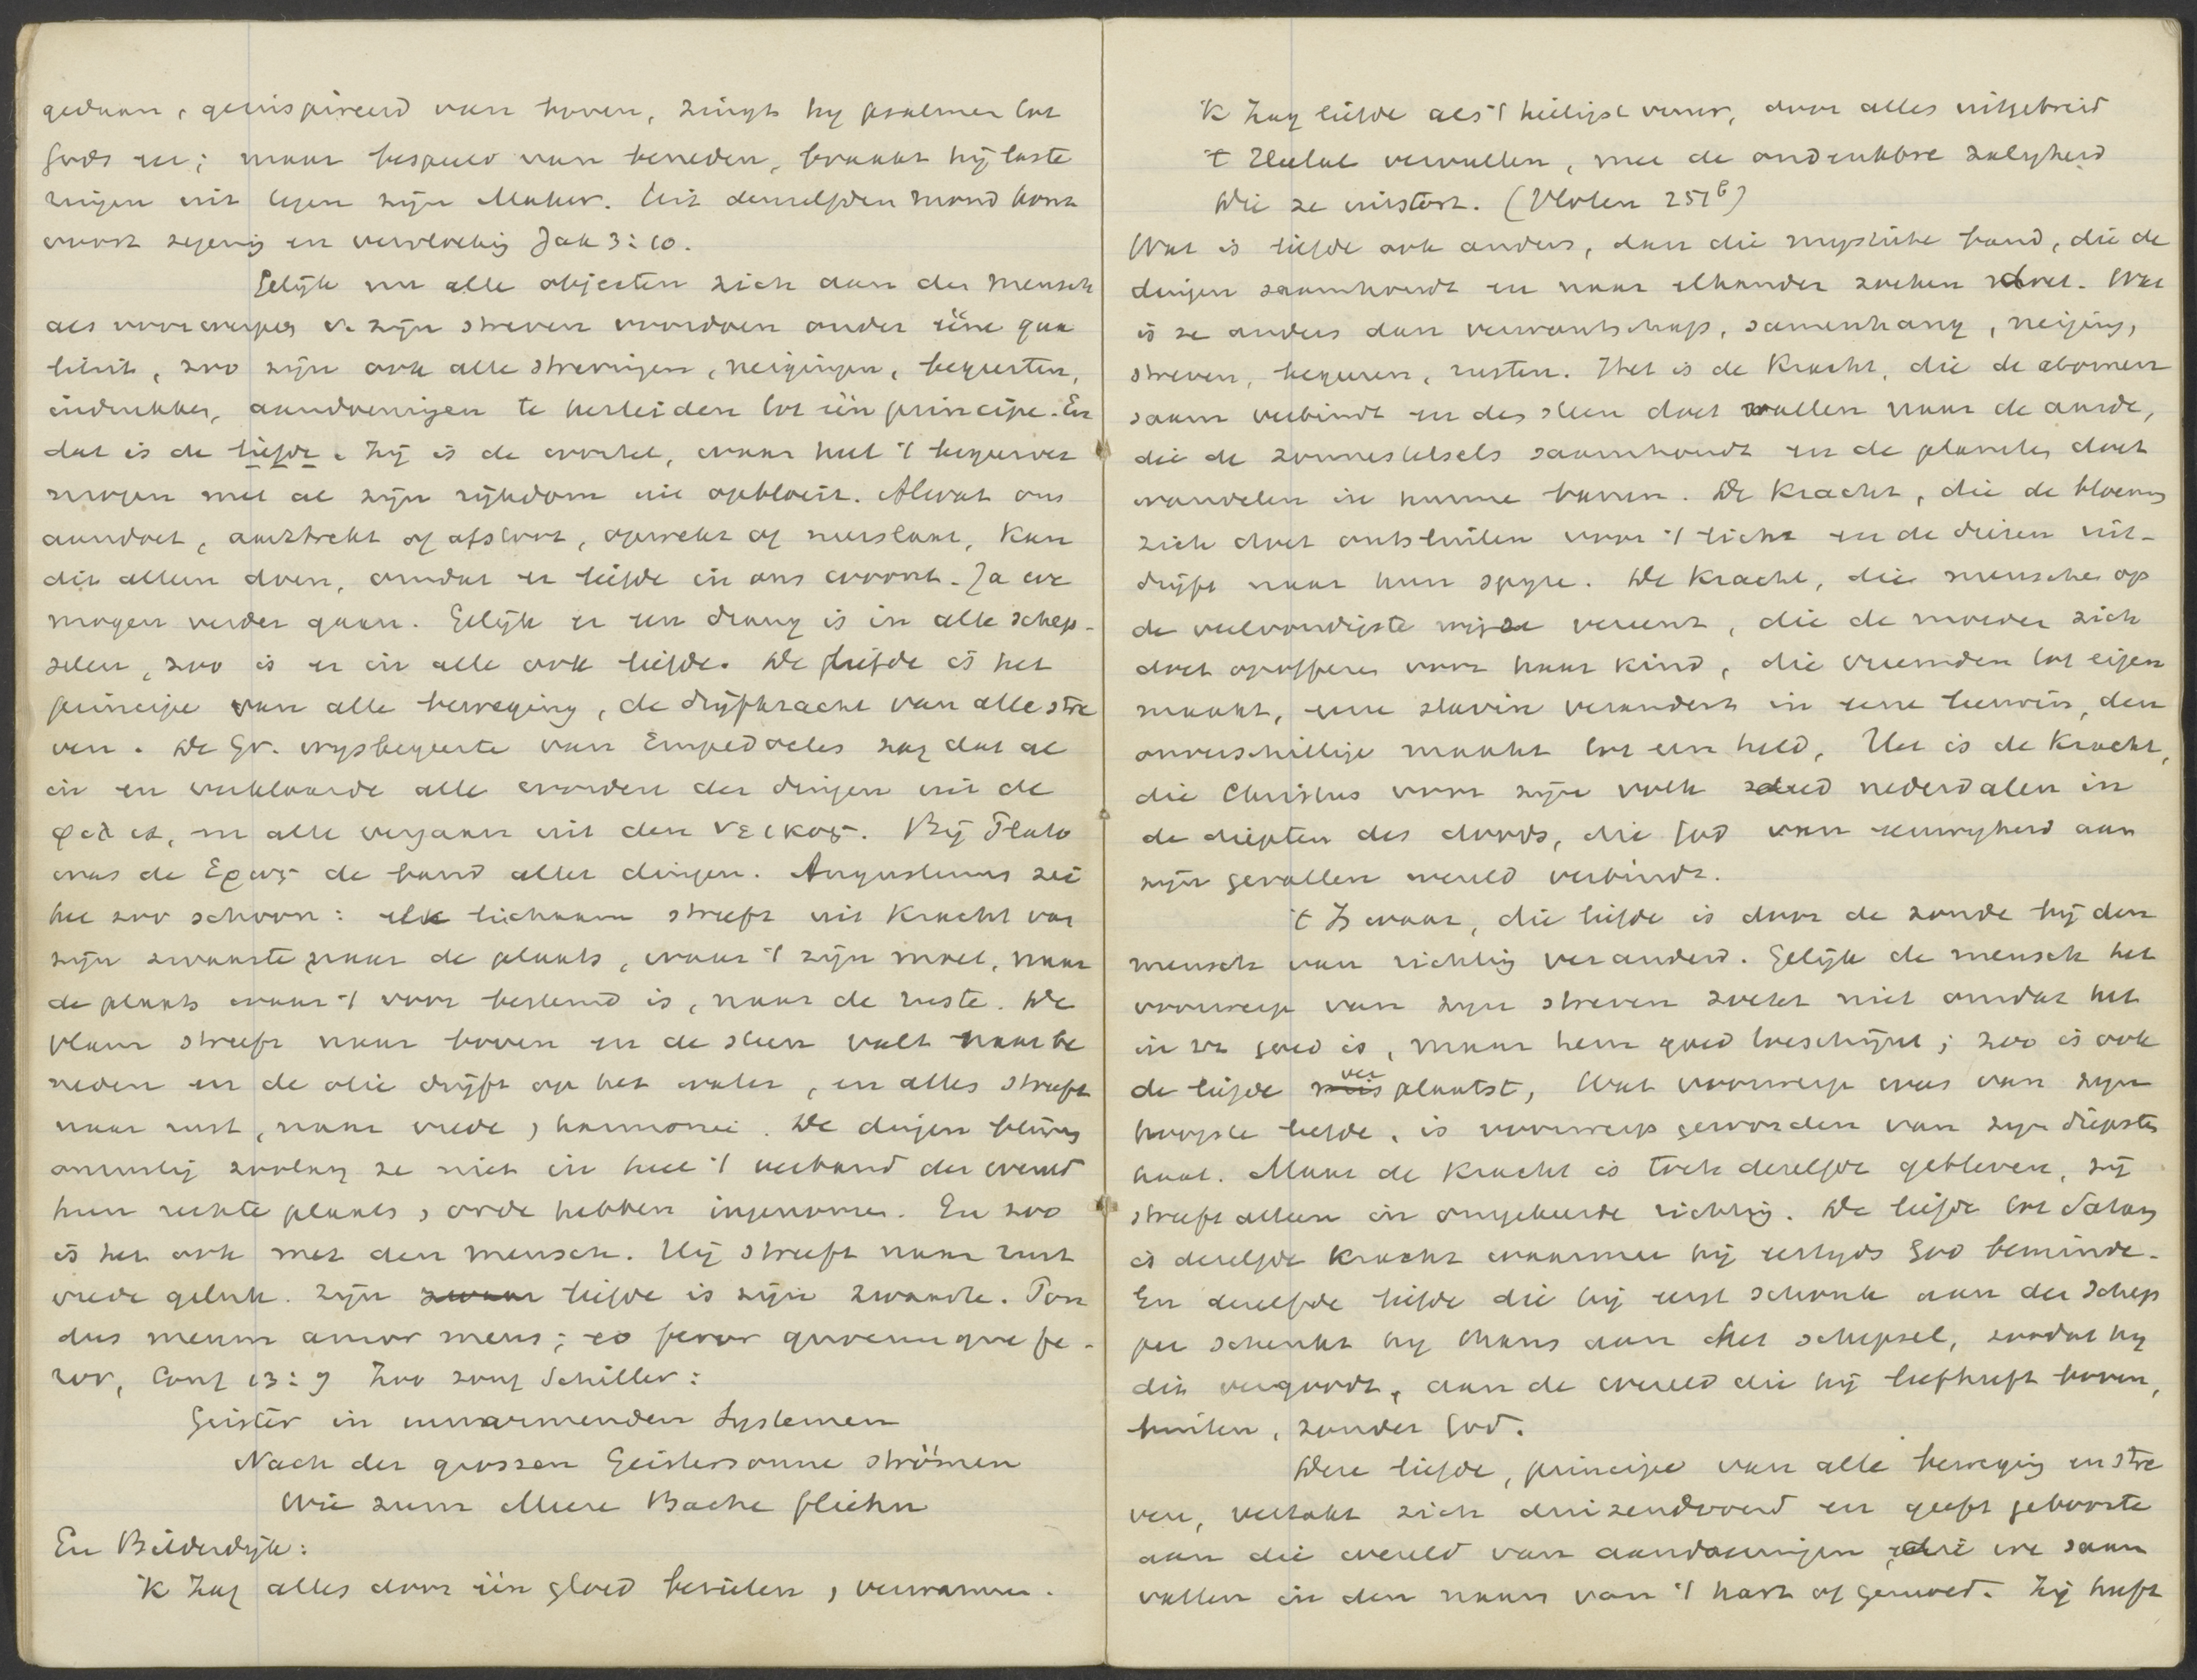 gedaan, geinspireerd van boven, zingt hy psalmen tot
Gods eer; maar bespeeld van beneden, braakt hij laste
ringen uit tegen zijn Maker. Uit denzelfden mond komt
voort zegenig en vervloekig Jak 3:10.
Gelijk nu alle objecten zich aan den mensch
als voorwerpen v. zijn streven voordoen onder ééne qua
liteit, zoo zijn ook alle strevingen, neigingen, begeerten,
indrukken, aandoeningen te herleiden tot één principe. En
dat is de liefde. Zij is de wortel, waar heel 't begeerver
mogen met al zijn rijkdom uit opbloeit. Alwat ons
aandoet, aantrekt of afstoot, opwekt of neerslaat, kan
dit alleen doen, omdat er liefde in ons woont. Ja we
mogen verder gaan. Gelijk er een drang is in alle schep-
selen, zoo is er in alle ook liefde. De liefde is het
principe van alle beweging, de drijfkracht van alle stre
ven. De Gr. wysbegeerte van Empedocles zag dat al
in en verklaarde alle worden der dingen uit de
φιλια, en alle vergaan uit den νεικος. Bij Plato
was de Ερως de band aller dingen. Augustinus zei
het zoo schoon: elk lichaam streeft uit kracht van
zijn zwaarte naar de plaats, waar 't zijn moet, naar
de plaats waar 't voor bestemd is, naar de ruste. De
vlam streeft naar boven en de steen valt naar be
neden en de olie drijft op het water, en alles streeft
naar rust, naar vrede, harmonie. De dingen blijven
onrustig zoolang ze niet in heel 't verband der wereld
hun rechte plaats, orde hebben ingenomen. En zoo
is het ook met den mensch. Hij streeft naar rust
vrede geluk. Zijn zwaar liefde is zijn zwaarte. Pon
dus meum amor meus; eo feror quocumque fe-
ror, Conf 13:9 Zoo zong Schiller:
Geister in umarmenden Systemen
Nach der grossen Geistersonne strömen
Wie zum Meere Bache fliehn
En Bilderdijk:
'k Zag alles door één gloed bezielen, verwarmen.
'k Zag liefde als 't heiligst vuur, door alles uitgebreid
't Heelal vervullen, met de ondrukbre zaligheid
Die ze uitstort. (Vloten 251b)
Wat is liefde ook anders, dan die mystieke band, die de
dingen saamhoudt en naar elkander zoeken doet. Wat
is ze anders dan verwantschap, samenhang, neiging,
streven, begeeren, rusten. Het is de Kracht, die de atomen
saam verbindt en den steen doet vallen naar de aarde,
die de zonnestelsels saamhoudt en de planeten doet
wandelen in hunne banen. De Kracht, die de bloemen
zich doet ontsluiten voor 't licht en de dieren uit-
drijft naar hun spyze. De Kracht, die menschen op
de veelvoudigste wijze vereent, die de moeder zich
doet opofferen voor haar kind, die vreemden tot eigen
maakt, eene slavin verandert in eene leeuwin, den
onverschillige maakt tot een held. Het is de Kracht,
die Christus voor zijn volk deed nederdalen in
de diepten des doods, die God van eeuwigheid aan
zijn gevallen wereld verbindt.
't Is waar, die liefde is door de zonde bij den
mensch van richting veranderd. Gelijk de mensch het
voorwerp van zijn streven zoekt niet omdat het
in zz goed is, maar hem goed toeschijnt; zoo is ook
de liefde mis ver plaatst, Wat voorwerp was van zijn
hoogste liefde, is voorwerp geworden van zijn diepsten
haat. Maar de kracht is toch dezelfde gebleven, zij
streeft alleen in omgekeerde richting. De liefde tot Satan
is dezelfde kracht waarmee hij eertyds God beminde.
En dezelfde liefde die hij eerst schonk aan den Schep
per schenkt hy thans aan het schepsel, zoodat hy
dit vergoodt, aan de wereld die hij liefheeft boven,
buiten, zonder God.
Deze liefde, principe van alle beweging en stre
ven, vertakt zich duizendvoud en geeft geboorte
aan die wereld van aandoeningen die we saam
vatten in den naam van 't hart of gemoed. Zij heeft